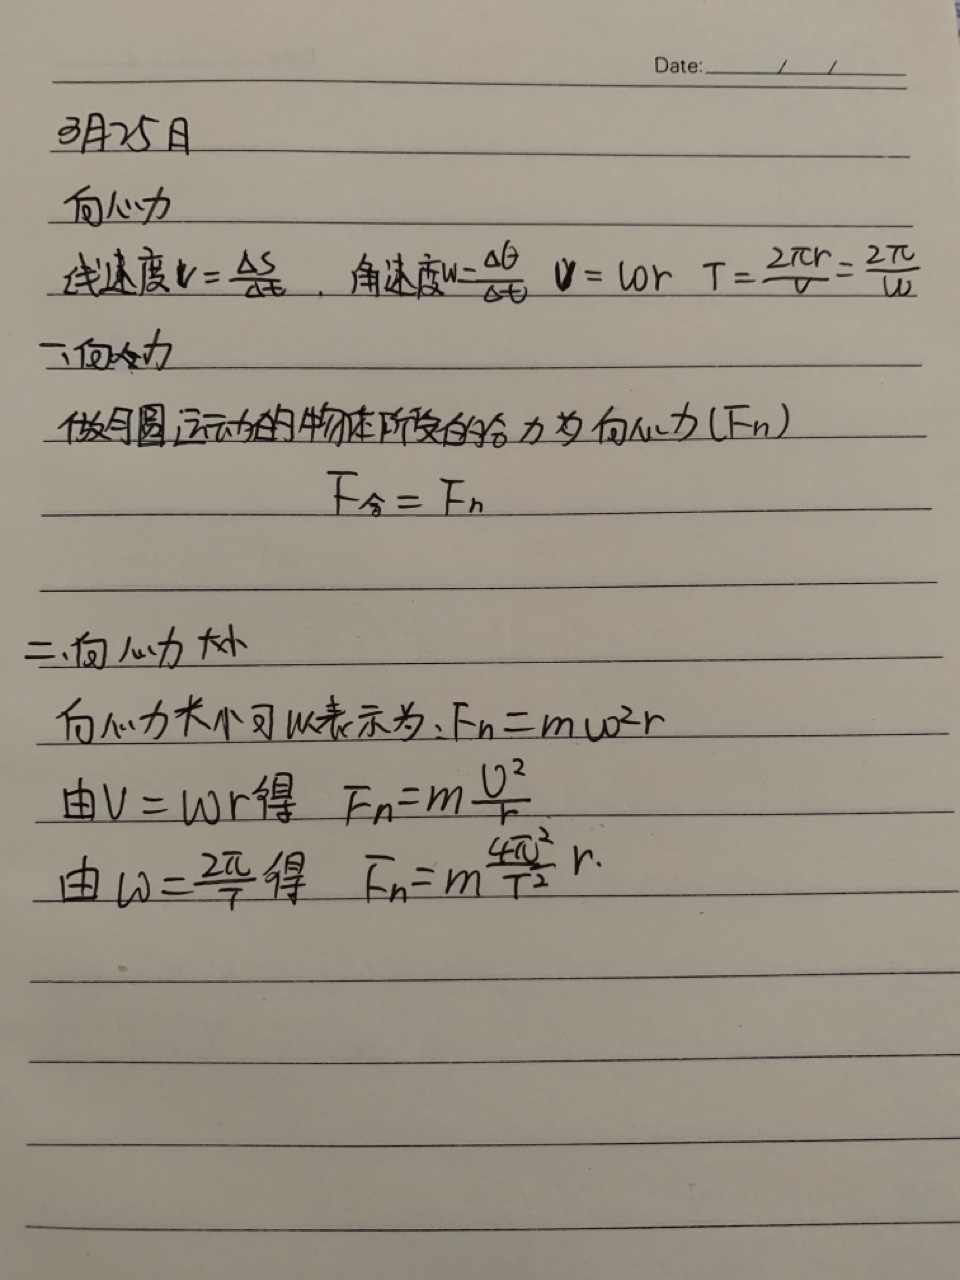 Date: / /
3月25日
向心力
线速度v=Δs/Δt, 角速度ω=Δθ/Δt v=ωr T=2πr/v=2π/ω
一、向心力
做匀圆运动的物体所受的合力为向心力(Fn)
F合=Fn
二、向心力大小
向心力大小可以表示为:Fn=mω²r
由v=ωr得 Fn=m v²/r
由ω=2π/T得 Fn=m 4π²/T² r.